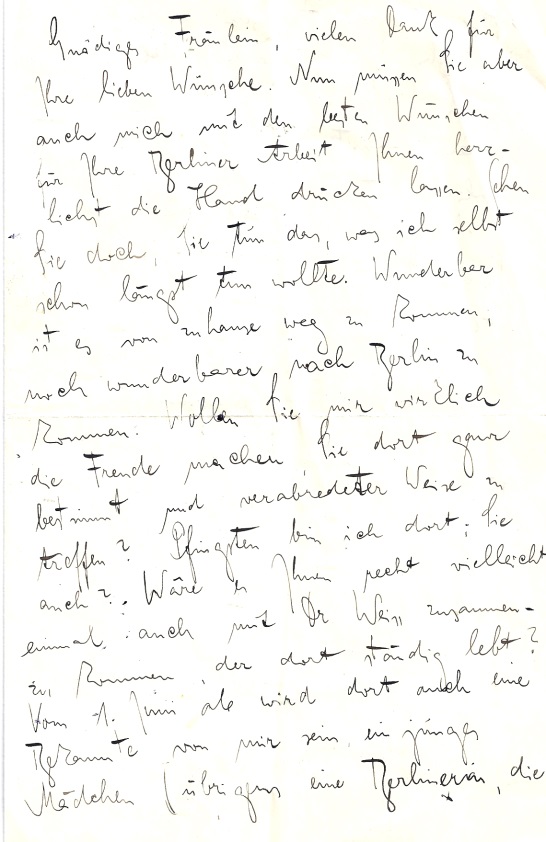 Gnädiges Fräulein, vielen Dank für
Ihre lieben Wünsche. Nun müssen Sie aber
auch mich mit den besten Wünschen
für Ihre Berliner Arbeit Ihnen herz-
lichst die Hand drücken lassen. Gehen
Sie doch, Sie tun das, was ich selbst
schon längst tun wollte. Wunderbar
ist es von zuhause weg zu kommen,
noch wunderbarer nach Berlin zu
kommen. Wollen Sie mir wirklich
die Freude machen, Sie dort ganz
bestimmt und verabredeter Weise zu
treffen? Pfingsten bin ich dort; Sie
auch? Wäre es Ihnen recht vielleicht
einmal auch mit Dr Weiss zusammen-
zu kommen, der dort ständig lebt?
Vom 1. Juni ab wird dort auch eine
Bekannte von mir sein, ein junges
Mädchen (übrigens eine Berlinerin, die